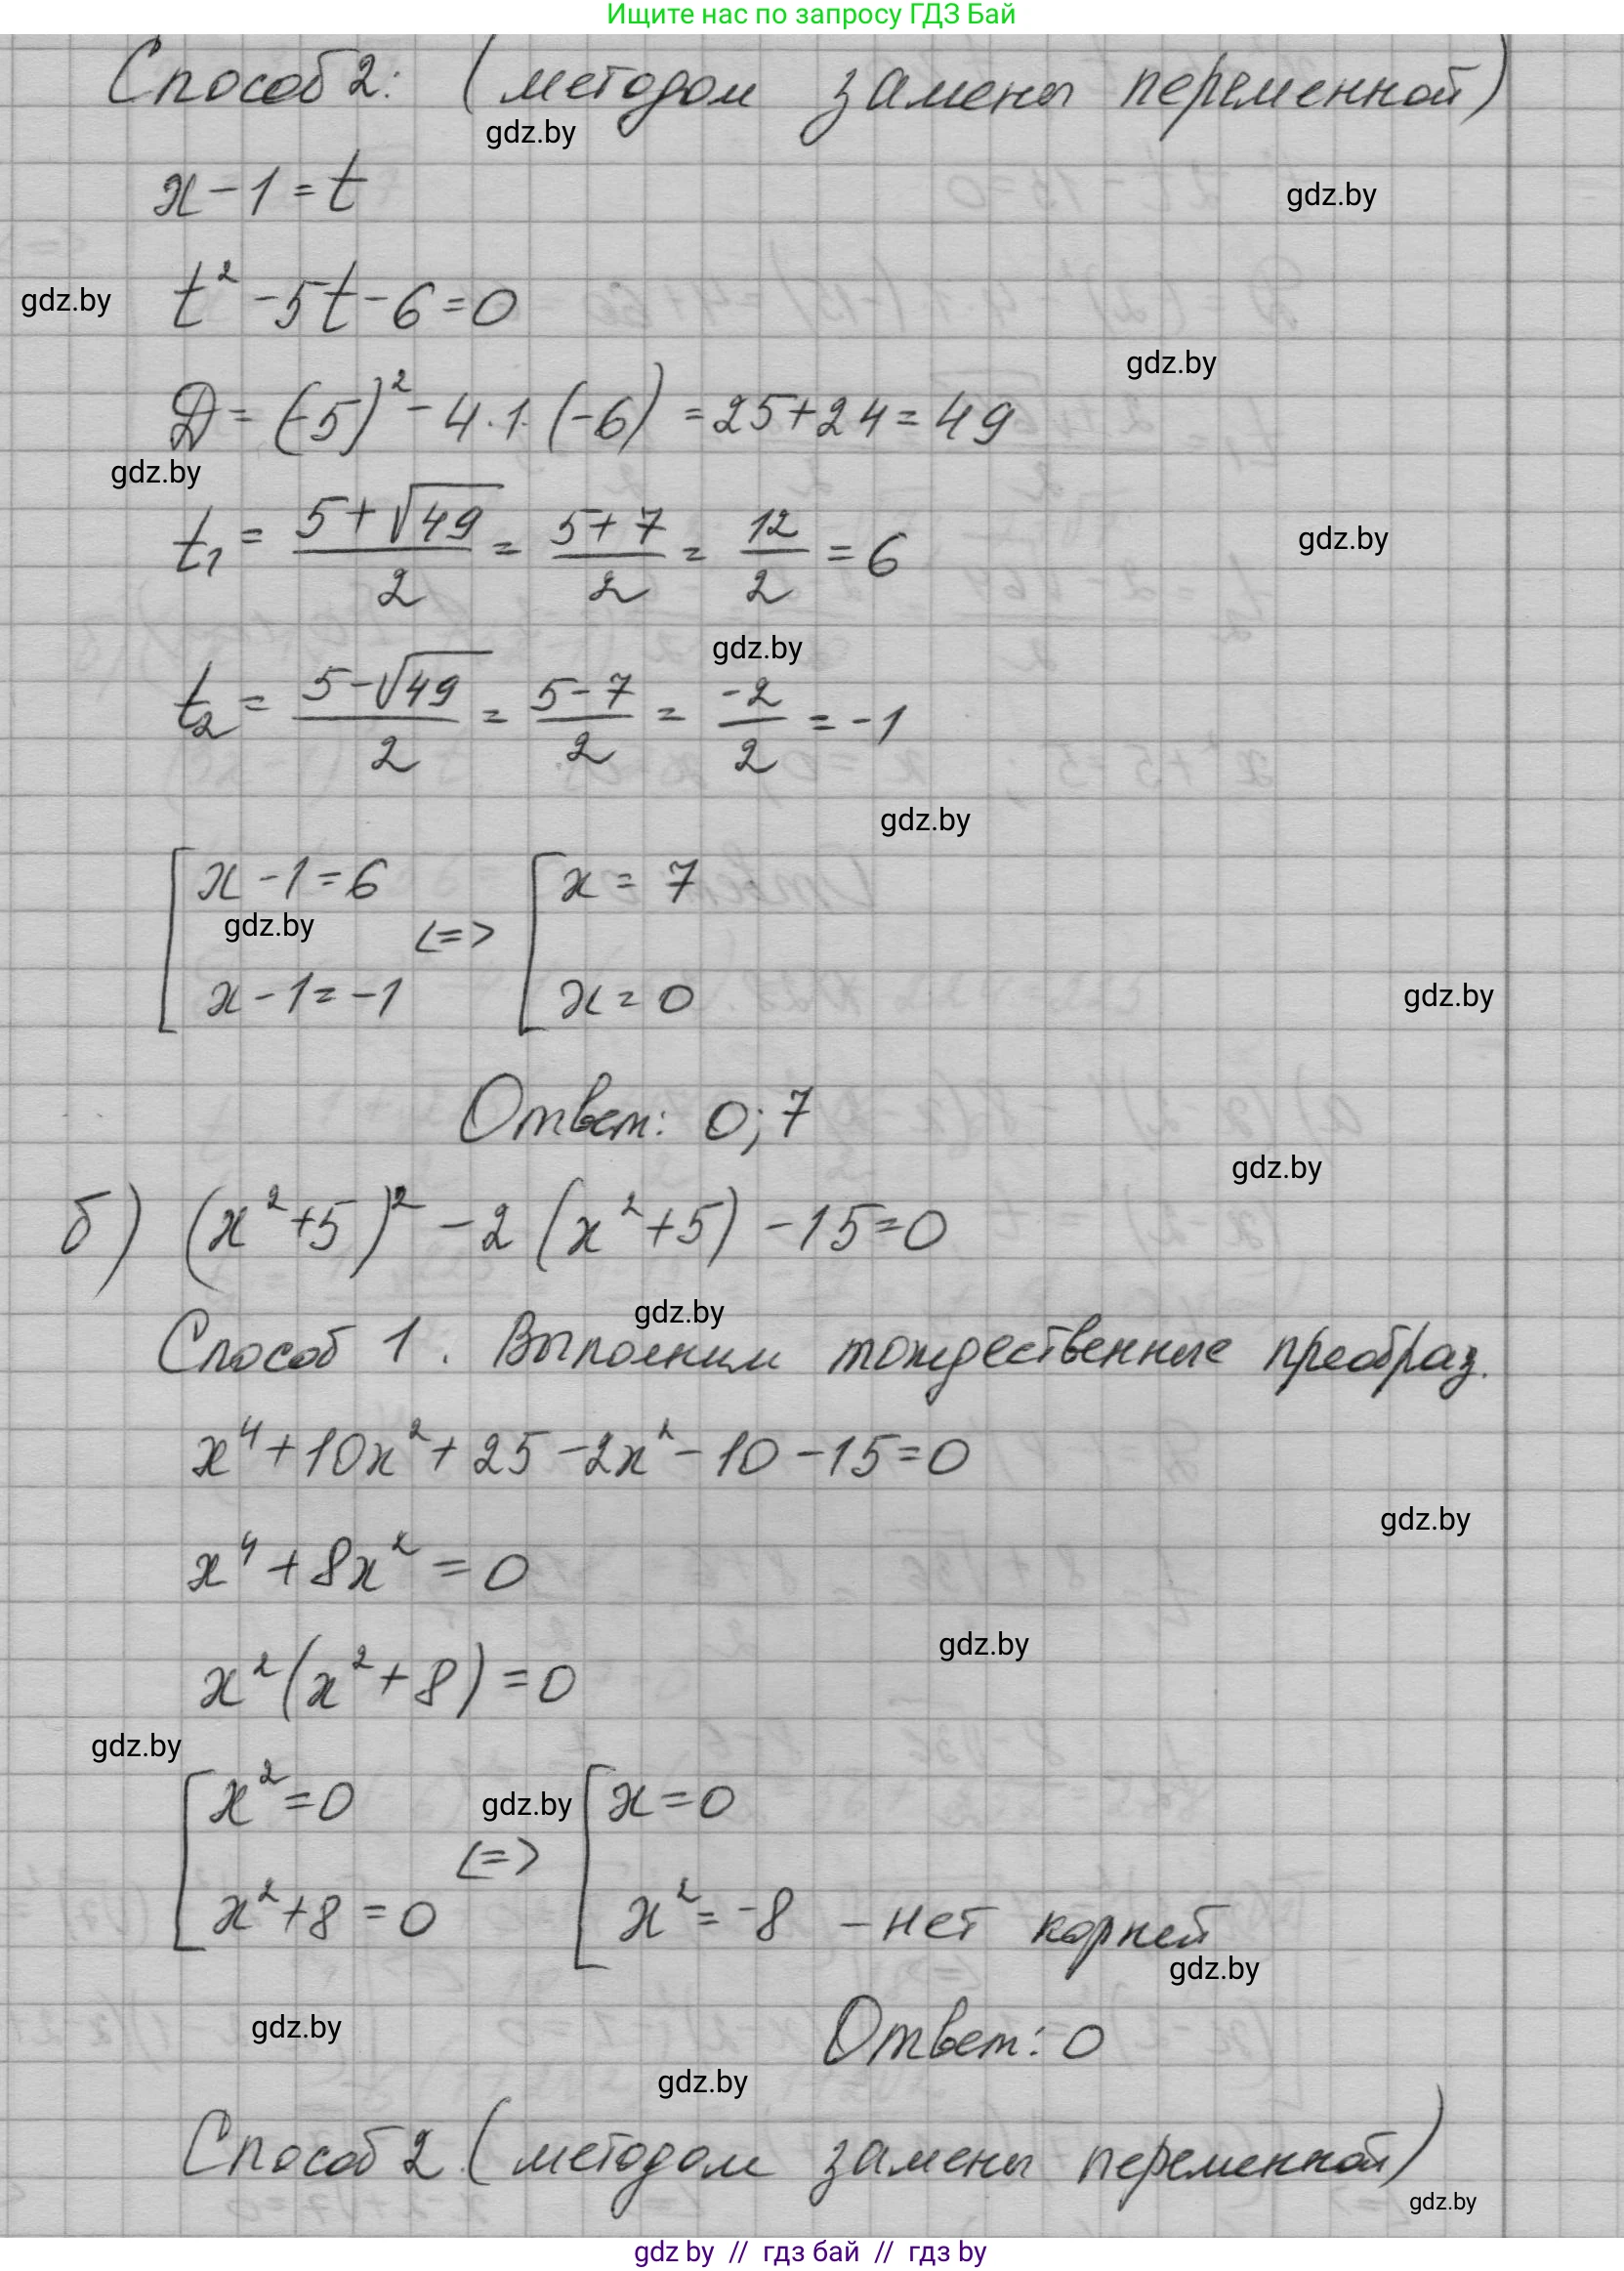 Ищите нас по запросу ГДЗ Бай
Способ 2: (методом замены переменной)
gdz.by
x - 1 = t
gdz.by
t² - 5t - 6 = 0
gdz.by
gdz.by
D = (-5)² - 4·1·(-6) = 25 + 24 = 49
gdz.by
t₁ = (5+√49)/2 = (5+7)/2 = 12/2 = 6
gdz.by
gdz.by
t₂ = (5-√49)/2 = (5-7)/2 = -2/2 = -1
gdz.by
[ x - 1 = 6 <=> [ x = 7
gdz.by
x - 1 = -1 x = 0
gdz.by
Ответ: 0; 7
gdz.by
б) (x²+5)² - 2(x²+5) - 15 = 0
gdz.by
Способ 1. Выполним тождественные преобраз.
x⁴ + 10x² + 25 - 2x² - 10 - 15 = 0
gdz.by
x⁴ + 8x² = 0
gdz.by
x²(x² + 8) = 0
gdz.by
[ x² = 0 <=> [ x = 0
gdz.by
x² + 8 = 0 x² = -8 - нет корней
gdz.by
gdz.by
Ответ: 0
gdz.by
Способ 2 (методом замены переменной)
gdz.by
gdz by // гдз бай // гдз by